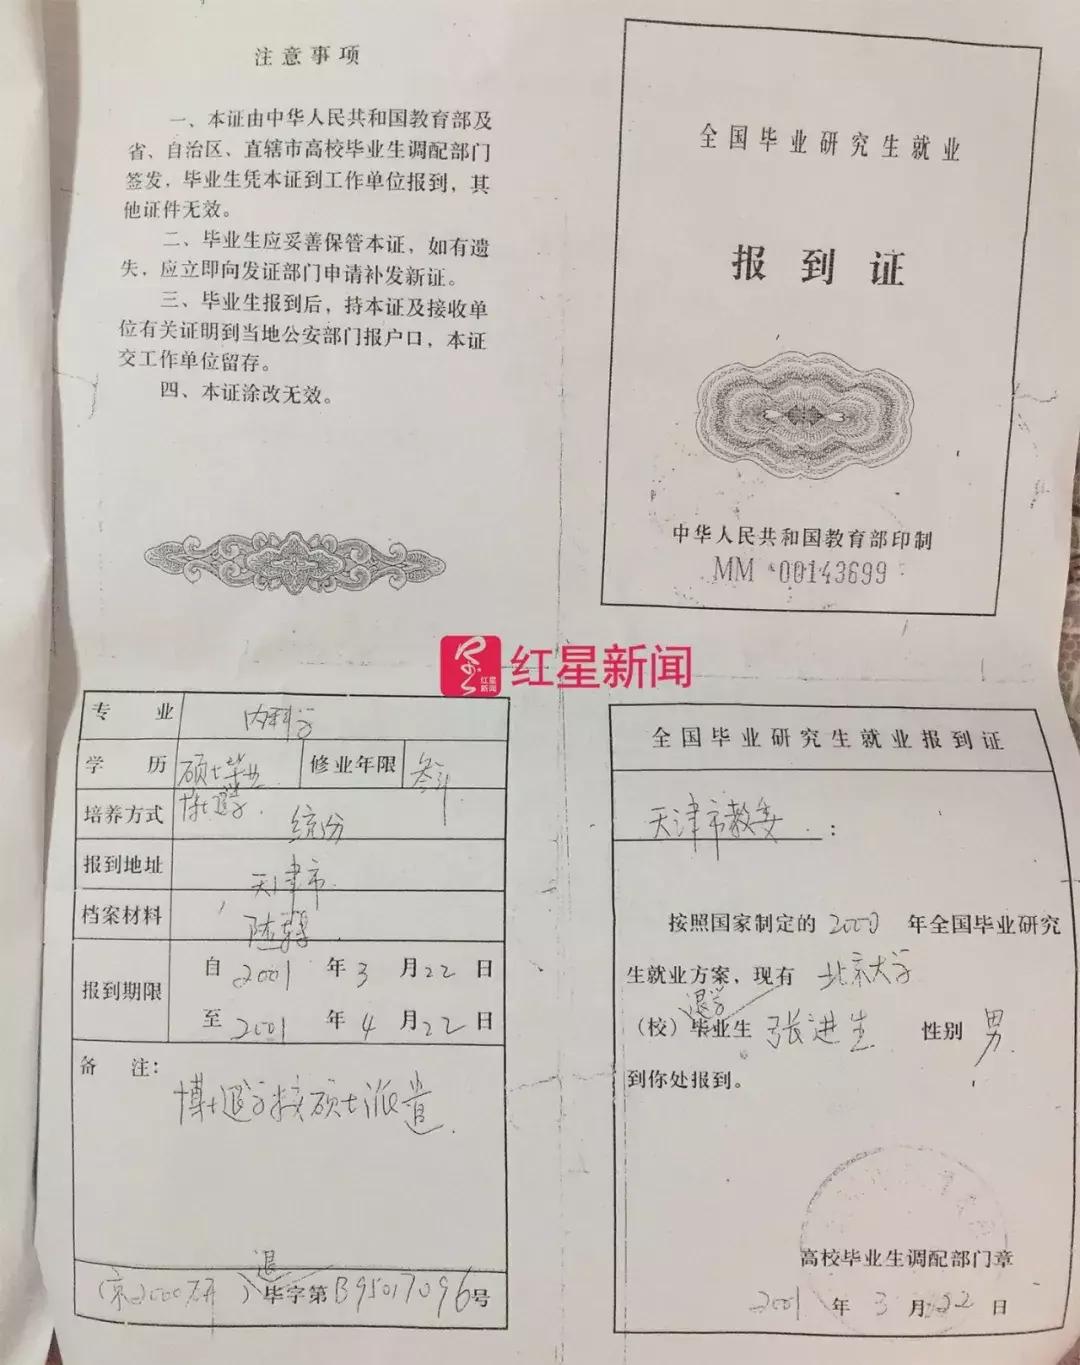 注意事项
一、本证由中华人民共和国教育部及
省、自治区、直辖市高校毕业生调配部门
签发，毕业生凭本证到工作单位报到，其
他证件无效。
二、毕业生应妥善保管本证，如有遗
失，应立即向发证部门申请补发新证。
三、毕业生报到后，持本证及接收单
位有关证明到当地公安部门报户口，本证
交工作单位留存。
四、本证涂改无效。
全国毕业研究生就业
报到证
中华人民共和国教育部印制
MM 00143699
红星新闻
红星
新闻
专 业 内科学
学 历 硕士毕业 修业年限 叁年
博士退学
培养方式 统分
报到地址 天津市
档案材料 随寄
报到期限 自 2001 年 3 月 22 日
至 2001 年 4 月 22 日
备 注：
博士退学按硕士派遣.
退
（京2000研）毕字第B95017096号
全国毕业研究生就业报到证
天津市教委：
按照国家制定的 2000 年全国毕业研究
生就业方案，现有 北京大学
退学
（校）毕业生 张进生 性别 男
到你处报到。
高校毕业生调配部门章
2001 年 3 月 22 日